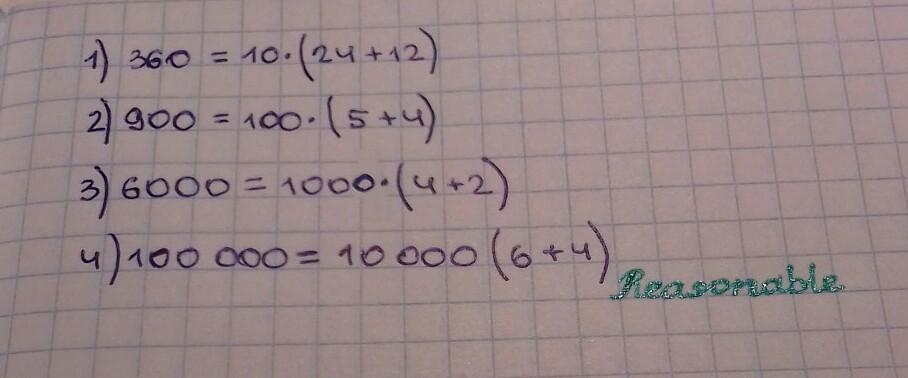 1) 360 = 10·(24+12)
2) 900 = 100·(5+4)
3) 6000 = 1000·(4+2)
4) 100 000 = 10 000 (6+4)
Reasonable